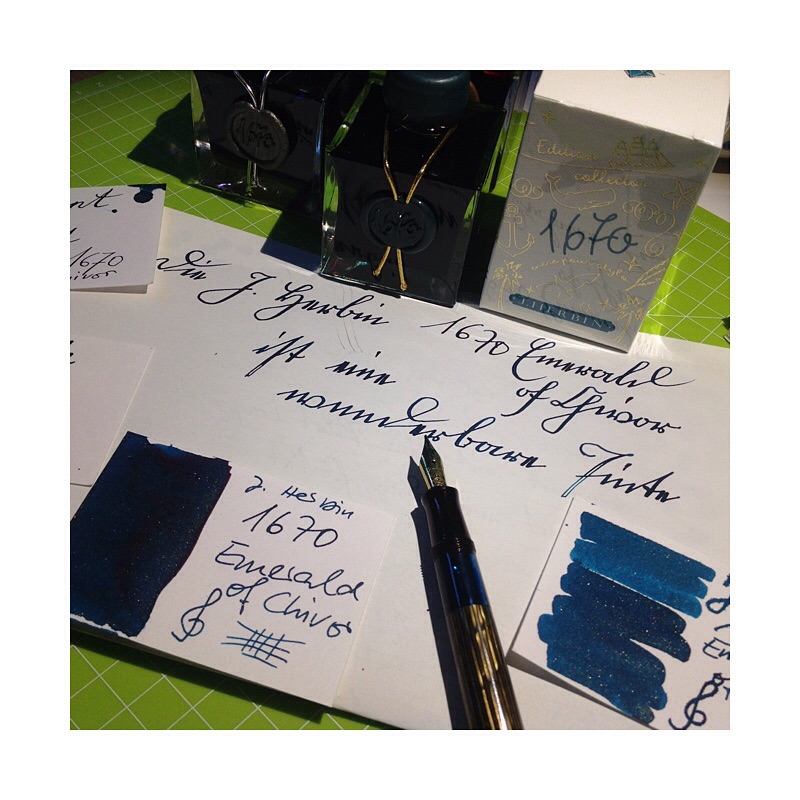 1670
1670
Edition
collector
1670
J.HERBIN
nt.
1670
Chivor
Die J. Herbin 1670 Emerald
of Chivor
ist eine
wunderbare Tinte
J. Herbin
1670
Emerald
of Chivor